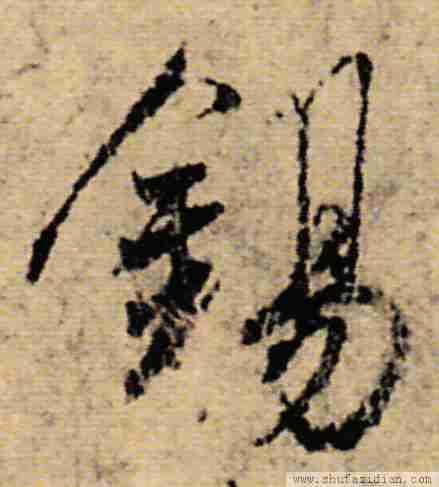 錫
www.shufazidian.com